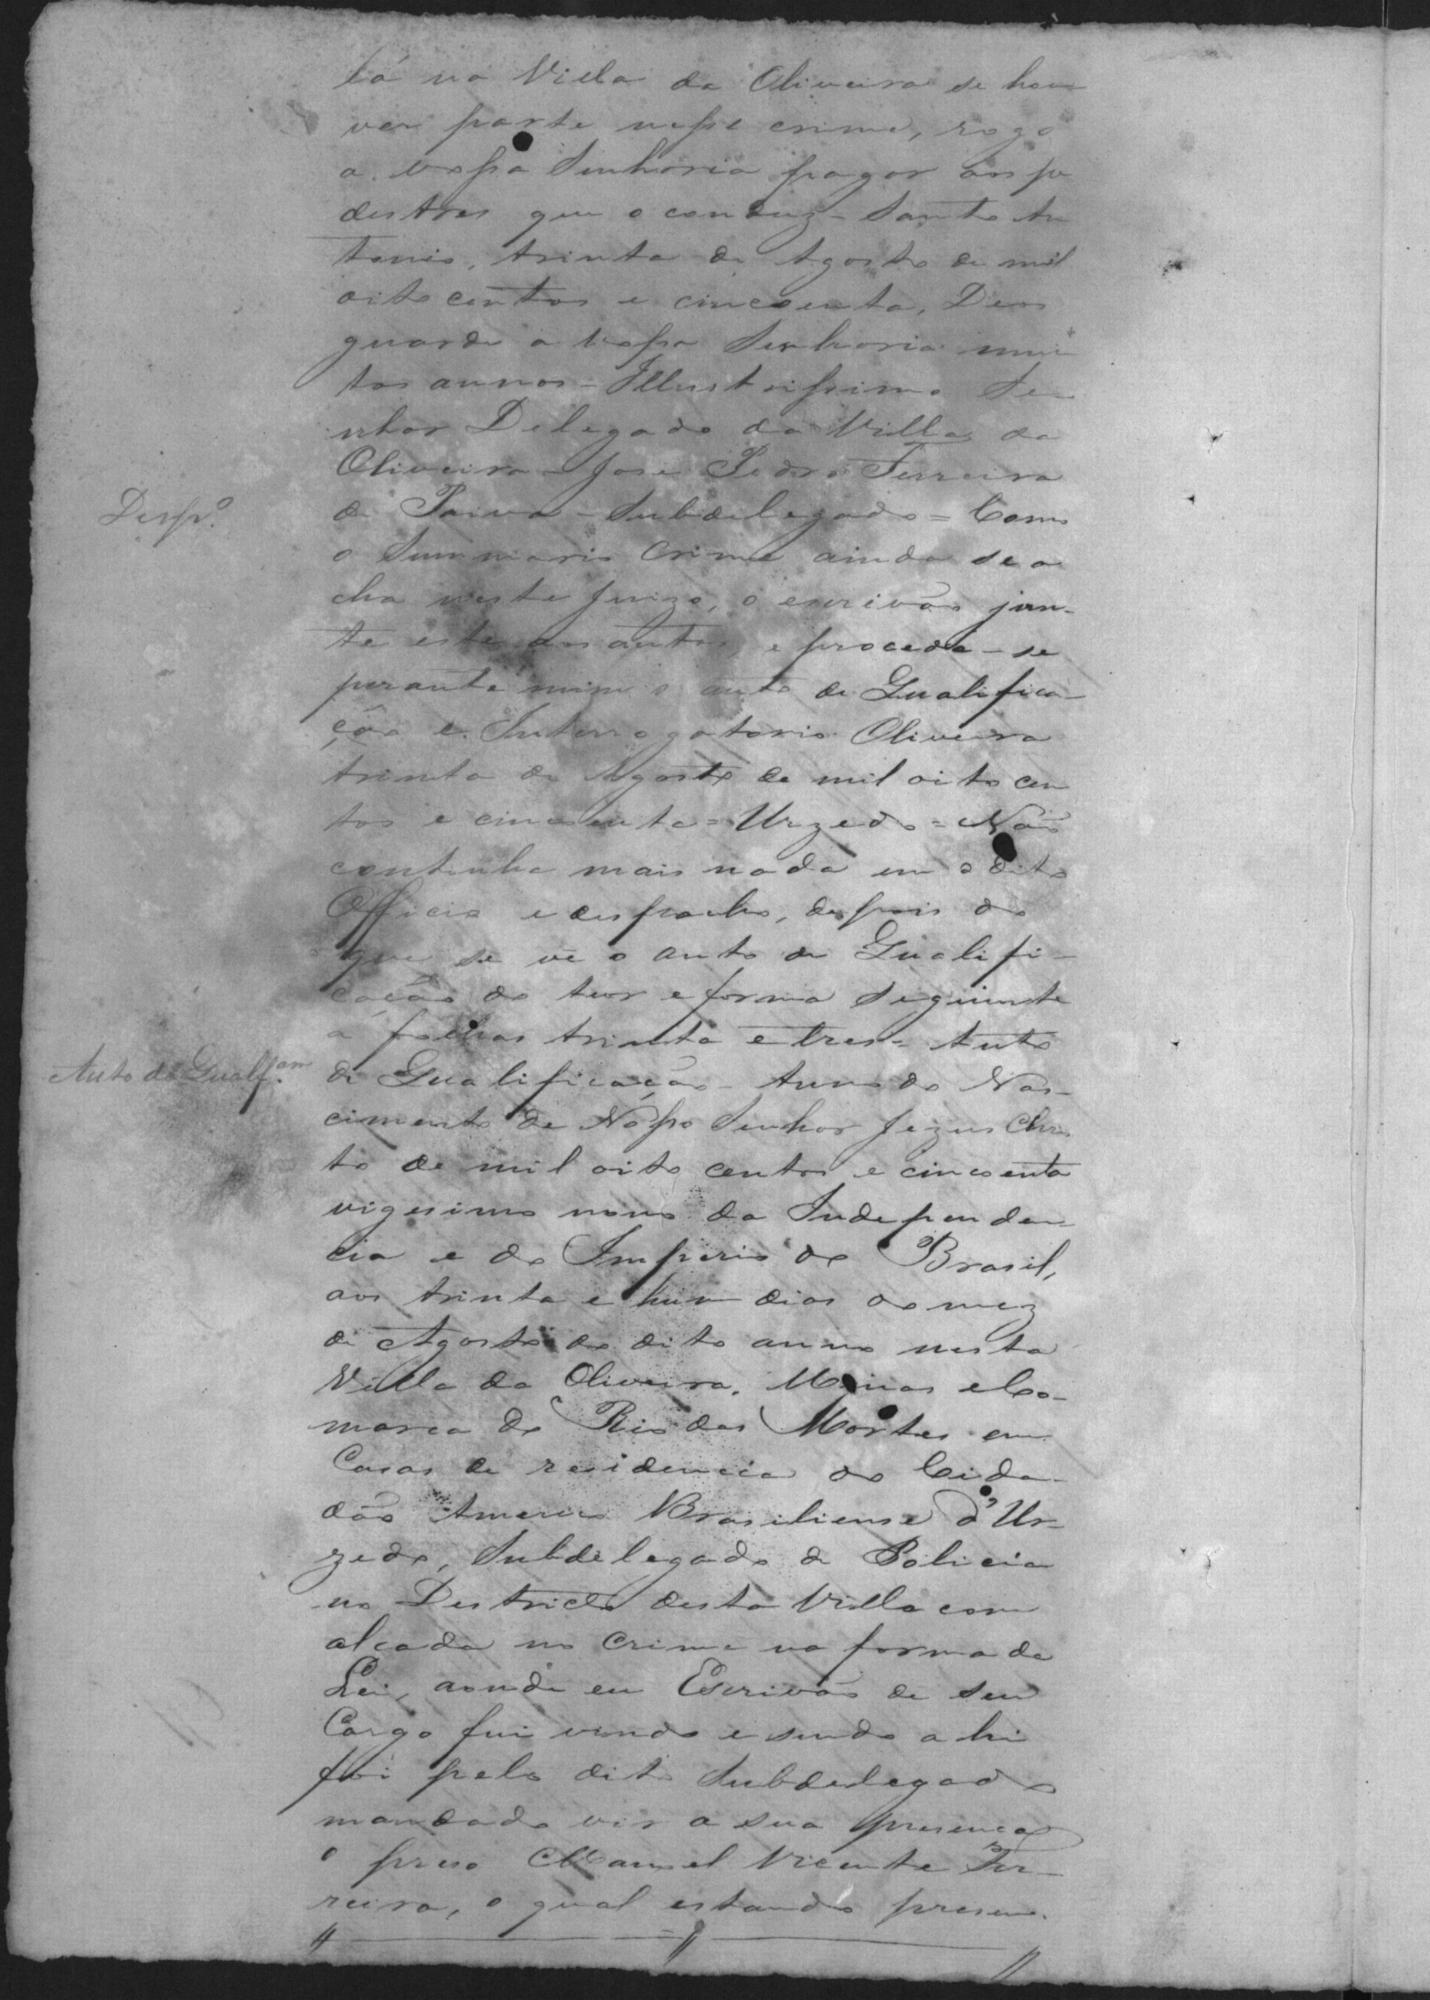 lá na Villa da Oliveira se hou
ver parte nesse crime, rogo
a vossa Senhoria pagar aos pe
destres que o conduz - Santo An
tonio, trinta de Agosto de mil
oito centos e cincoenta, Deos
guarde a vossa Senhoria mui
tos annos - Illustrissimo Se
nhor Delegado da Villa da
Oliveira - José Pedro Ferreira
Desp.º
de Paiva - Subdelegado = Como
o Summario Crime ainda se a
cha neste Juizo, o escrivão jun-
te este aos autos, e proceda-se
perante mim o auto de Qualifica-
ção e Interrogatorio Oliveira
trinta de Agosto de mil oito cen
tos e cincoenta = Urzedo = Não
continha mais nada em o dito
Officio e despacho, depois do
que se vê o auto de Qualifi-
cação do teor e forma seguinte
a folhas trinta e tres = Auto
Auto de Qualf.am
de Qualificação - Anno do Nas-
cimento de Nosso Senhor Jezus Chris
to de mil oito centos e cincoenta
vigesimo nono da Independen-
cia e do Imperio do Brasil,
aos trinta e hum dias do mez
de Agosto do dito anno nesta
Villa da Oliveira, Minas e Co-
marca do Rio das Mortes em
Casas de residencia do Cida-
dão Americo Brasiliense d'Ur-
zedo, Subdelegado de Policia
no Destricto desta Villa com
alçada no Crime na forma da
Lei, aonde eu Escrivão de seu
Cargo fui vindo e sendo ahi
foi pelo dito Subdelegado
mandado vir a sua presença
o preso Manoel Vicente Fer-
reira, o qual estando presen-